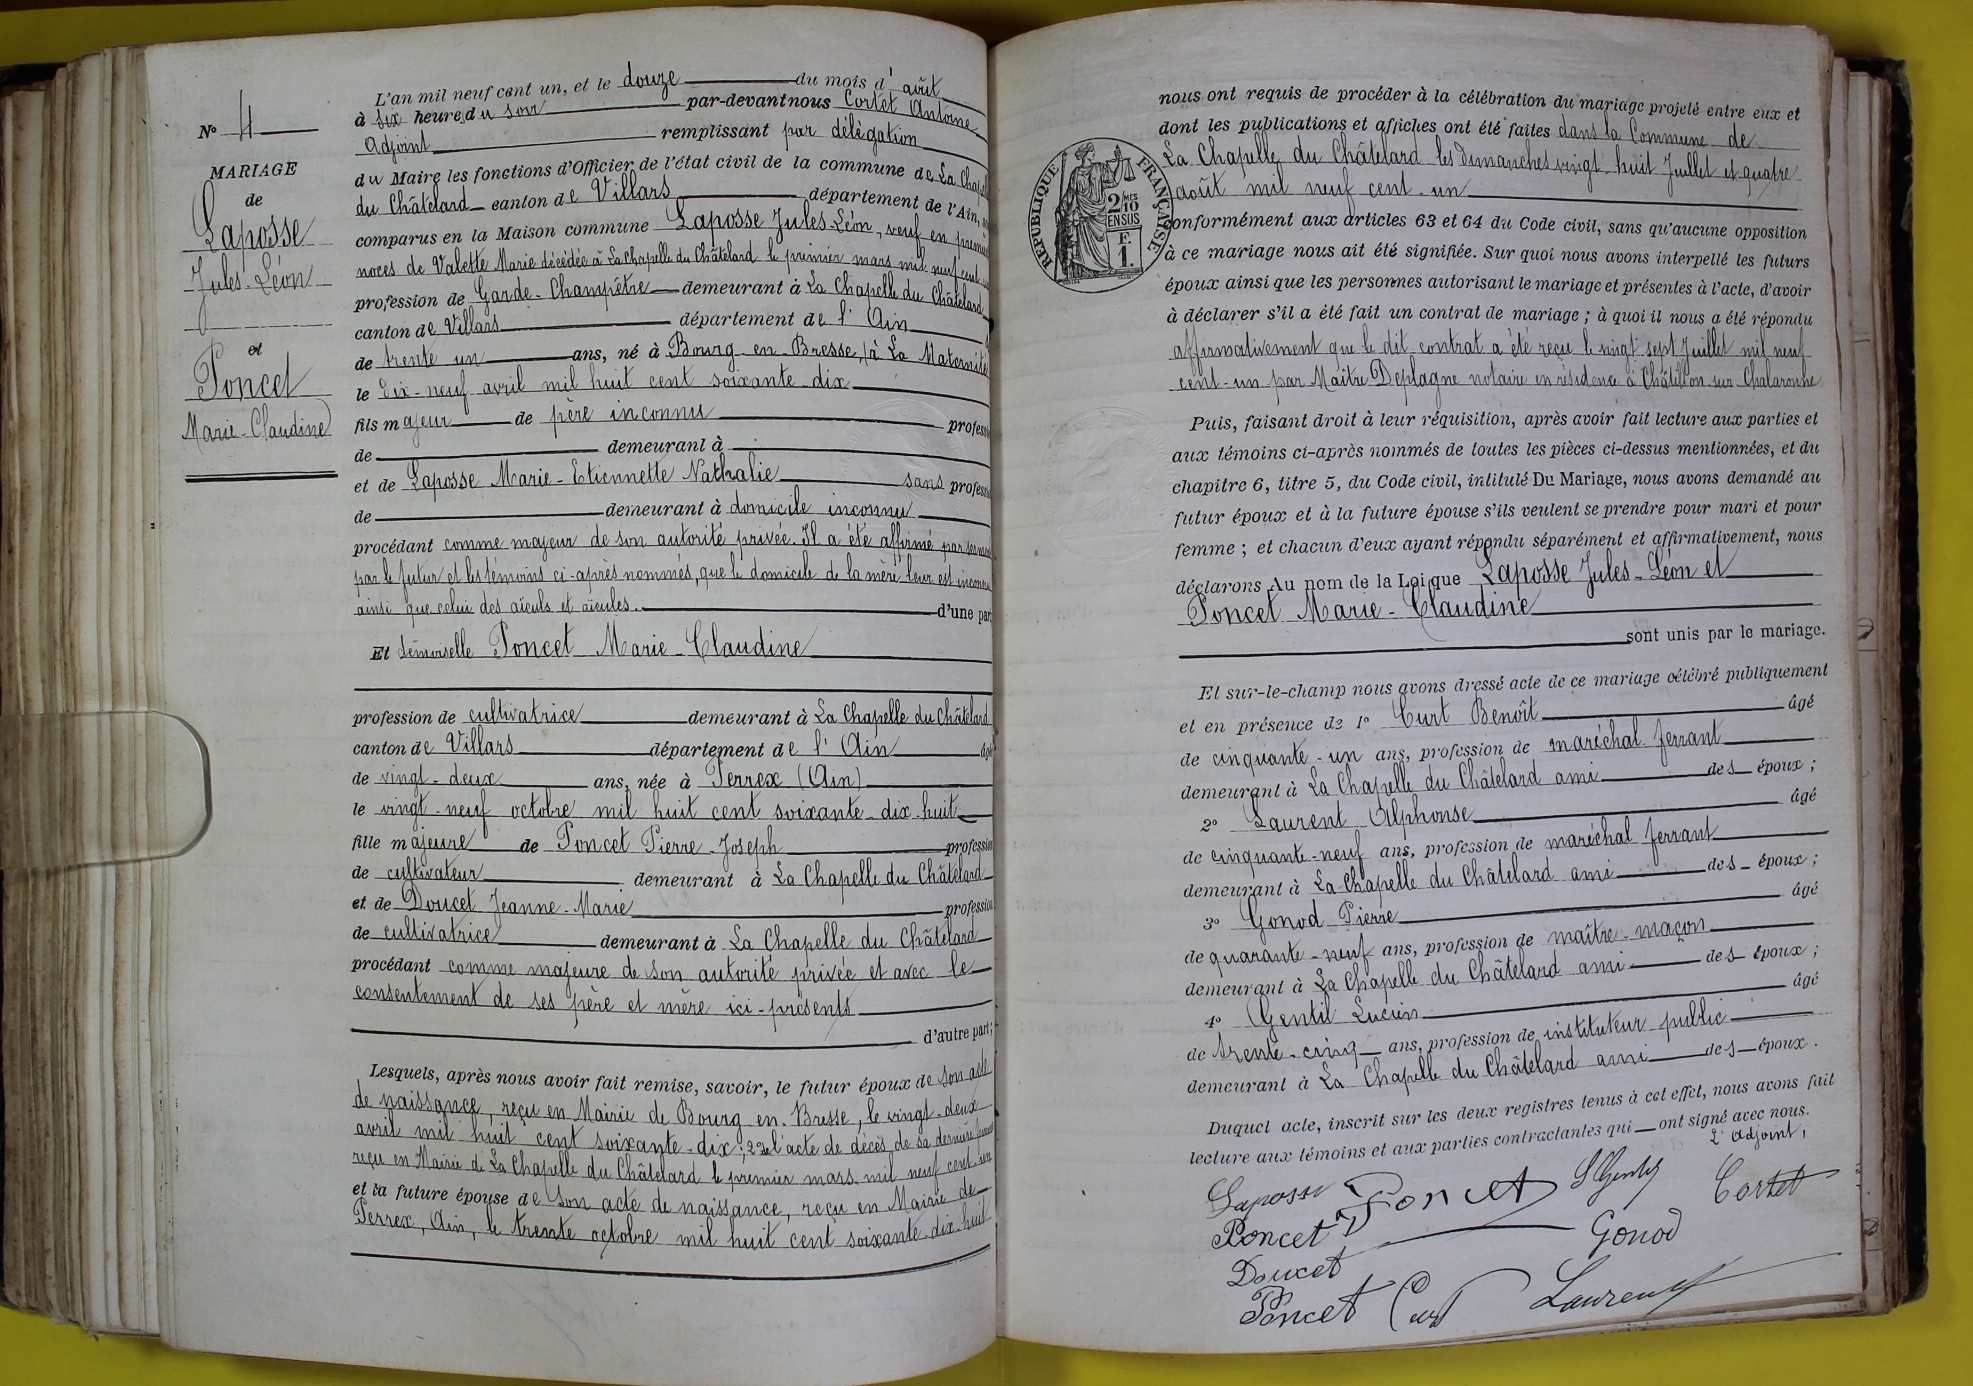 N° 4
MARIAGE
de
Laposse
Jules-Léon
et
Poncet
Marie-Claudine
L'an mil neuf cent un, et le douze du mois d'août
à six heures du soir par-devant nous Cortet Antoine
Adjoint remplissant par délégation
du Maire les fonctions d'Officier de l'état civil de la commune de La Chapelle
du Châtelard canton de Villars département de l'Ain,
comparus en la Maison commune Laposse Jules-Léon, veuf en premières
noces de Valette Marie décédée à La Chapelle du Châtelard le premier mars mil neuf cent un
profession de Garde-Champêtre demeurant à La Chapelle du Châtelard
canton de Villars département de l'Ain
de trente un ans, né à Bourg-en-Bresse, (à La Maternité
le dix-neuf avril mil huit cent soixante-dix
fils majeur de père inconnu profession
de demeurant à
et de Laposse Marie-Etiennette Nathalie sans profession
de demeurant à domicile inconnu
procédant comme majeur de son autorité privée. Il a été affirmé par serment
par le futur et les témoins ci-après nommés, que le domicile de la mère leur est inconnu
ainsi que celui des aïeuls et aïeules. d'une part
Et demoiselle Poncet Marie-Claudine
profession de cultivatrice demeurant à La Chapelle du Châtelard
canton de Villars département de l'Ain âgée
de vingt-deux ans, née à Perrex (Ain)
le vingt-neuf octobre mil huit cent soixante-dix-huit
fille majeure de Poncet Pierre-Joseph profession
de cultivateur demeurant à La Chapelle du Châtelard
et de Doucet Jeanne-Marie profession
de cultivatrice demeurant à La Chapelle du Châtelard
procédant comme majeure de son autorité privée et avec le
consentement de ses père et mère ici-présents
d'autre part;
Lesquels, après nous avoir fait remise, savoir, le futur époux de son acte
de naissance, reçu en Mairie de Bourg-en-Bresse, le vingt-deux
avril mil huit cent soixante-dix; 2° de l'acte de décès de sa dernière femme
reçu en Mairie de La Chapelle du Châtelard le premier mars mil neuf cent-un
et la future épouse de son acte de naissance, reçu en Mairie de
Perrex, Ain, le trente octobre mil huit cent soixante-dix-huit
nous ont requis de procéder à la célébration du mariage projeté entre eux et
dont les publications et affiches ont été faites dans la Commune de
La Chapelle du Châtelard les dimanches vingt-huit Juillet et quatre
août mil neuf cent-un
RÉPUBLIQUE FRANÇAISE
2 MES
10
EN SUS
F.
1.
conformément aux articles 63 et 64 du Code civil, sans qu'aucune opposition
à ce mariage nous ait été signifiée. Sur quoi nous avons interpellé les futurs
époux ainsi que les personnes autorisant le mariage et présentes à l'acte, d'avoir
à déclarer s'il a été fait un contrat de mariage; à quoi il nous a été répondu
affirmativement que le dit contrat a été reçu le vingt sept Juillet mil neuf
cent-un par Maître Deplagne notaire en résidence à Châtillon-sur-Chalaronne
Puis, faisant droit à leur réquisition, après avoir fait lecture aux parties et
aux témoins ci-après nommés de toutes les pièces ci-dessus mentionnées, et du
chapitre 6, titre 5, du Code civil, intitulé Du Mariage, nous avons demandé au
futur époux et à la future épouse s'ils veulent se prendre pour mari et pour
femme; et chacun d'eux ayant répondu séparément et affirmativement, nous
déclarons Au nom de la Loi que Laposse Jules-Léon et
Poncet Marie-Claudine
sont unis par le mariage.
Et sur-le-champ nous avons dressé acte de ce mariage célébré publiquement
et en présence de 1° Curt Benoît âgé
de cinquante-un ans, profession de maréchal ferrant
demeurant à La Chapelle du Châtelard ami des époux;
2° Laurent Alphonse âgé
de cinquante-neuf ans, profession de maréchal ferrant
demeurant à La Chapelle du Châtelard ami des époux;
3° Gonod Pierre âgé
de quarante-neuf ans, profession de maître-maçon
demeurant à La Chapelle du Châtelard ami des époux;
4° Gentil Lucien âgé
de trente-cinq ans, profession de instituteur public
demeurant à La Chapelle du Châtelard ami des époux.
Duquel acte, inscrit sur les deux registres tenus à cet effet, nous avons fait
lecture aux témoins et aux parties contractantes qui ont signé avec nous.
L'adjoint,
Laposse Poncet LGentil Cortet
Poncet Gonod
Doucet
Poncet Curt Laurent